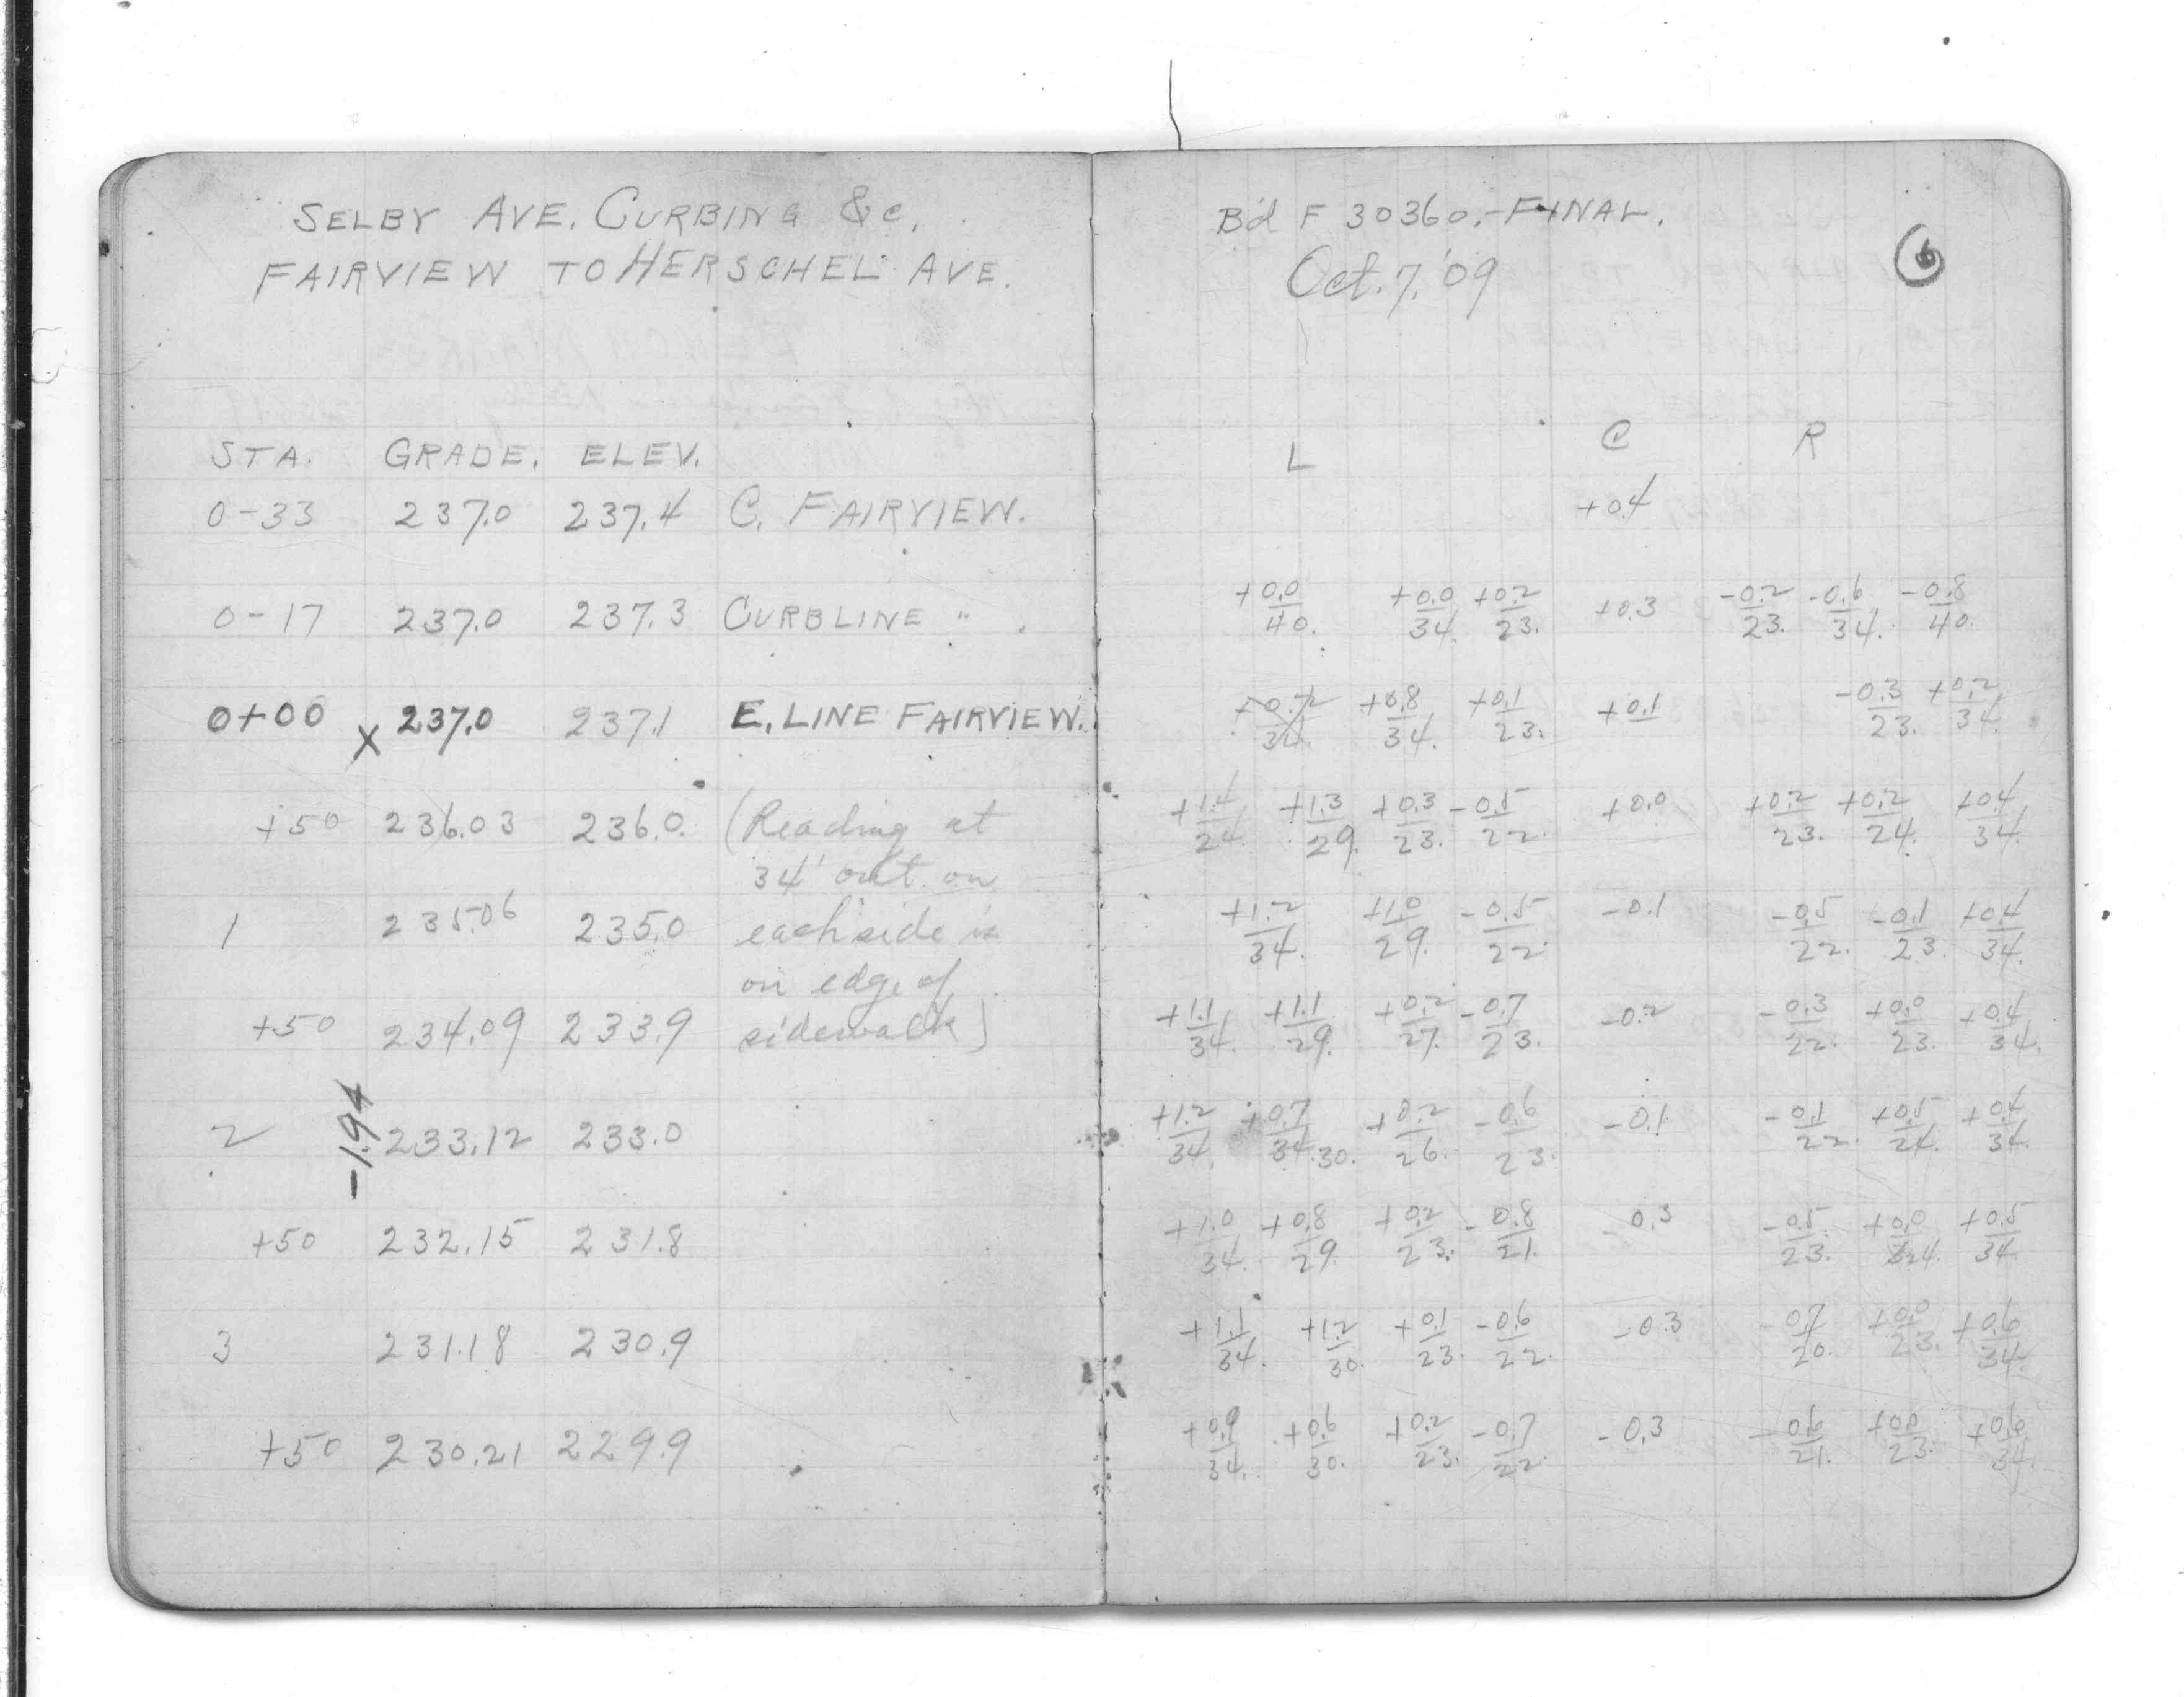 SELBY AVE. CURBING &c.
FAIRVIEW TO HERSCHEL AVE.
STA. GRADE. ELEV.
0-33 237.0 237.4 C. FAIRVIEW.
0-17 237.0 237.3 CURBLINE " .
0+00 x 237.0 237.1 E. LINE FAIRVIEW.
+50 236.03 236.0. (Reading at
34' out on
1 235.06 235.0 each side is
on edge of
+50 234.09 233.9 sidewalk)
-1.94
2 233.12 233.0
+50 232.15 231.8
3 231.18 230.9
+50 230.21 229.9
Bd F 30360.-FINAL.
Oct. 7, '09
6
L C R
+0.4
+0.0 +0.0 +0.2 +0.3 -0.2 -0.6 -0.8
40. 34. 23. 23. 34. 40.
+0.8 +0.1 +0.1 -0.3 +0.2
34 34. 23. 23. 34.
+1.4 +1.3 +0.3 -0.5 +0.0 +0.2 +0.2 +0.4
24. 29. 23. 22. 23. 24. 34.
+1.2 +1.0 -0.5 -0.1 -0.5 -0.1 +0.4
34. 29. 22. 22. 23. 34.
+1.1 +1.1 +0.2 -0.7 -0.2 -0.3 +0.0 +0.4
34. 29. 27. 23. 22. 23. 34.
+1.2 +0.7 +0.2 -0.6 -0.1 -0.1 +0.5 +0.4
34. 34.30. 26. 23. 22. 24. 34.
+1.0 +0.8 +0.2 -0.8 -0.3 -0.5 +0.0 +0.5
34. 29. 23. 21. 23. 24. 34
+1.1 +1.2 +0.1 -0.6 -0.3 -0.7 +0.0 +0.6
34. 30. 23. 22. 20. 23. 34.
+0.9 +0.6 +0.2 -0.7 -0.3 -0.6 +0.0 +0.6
34. 30. 23. 22. 21. 23. 34.